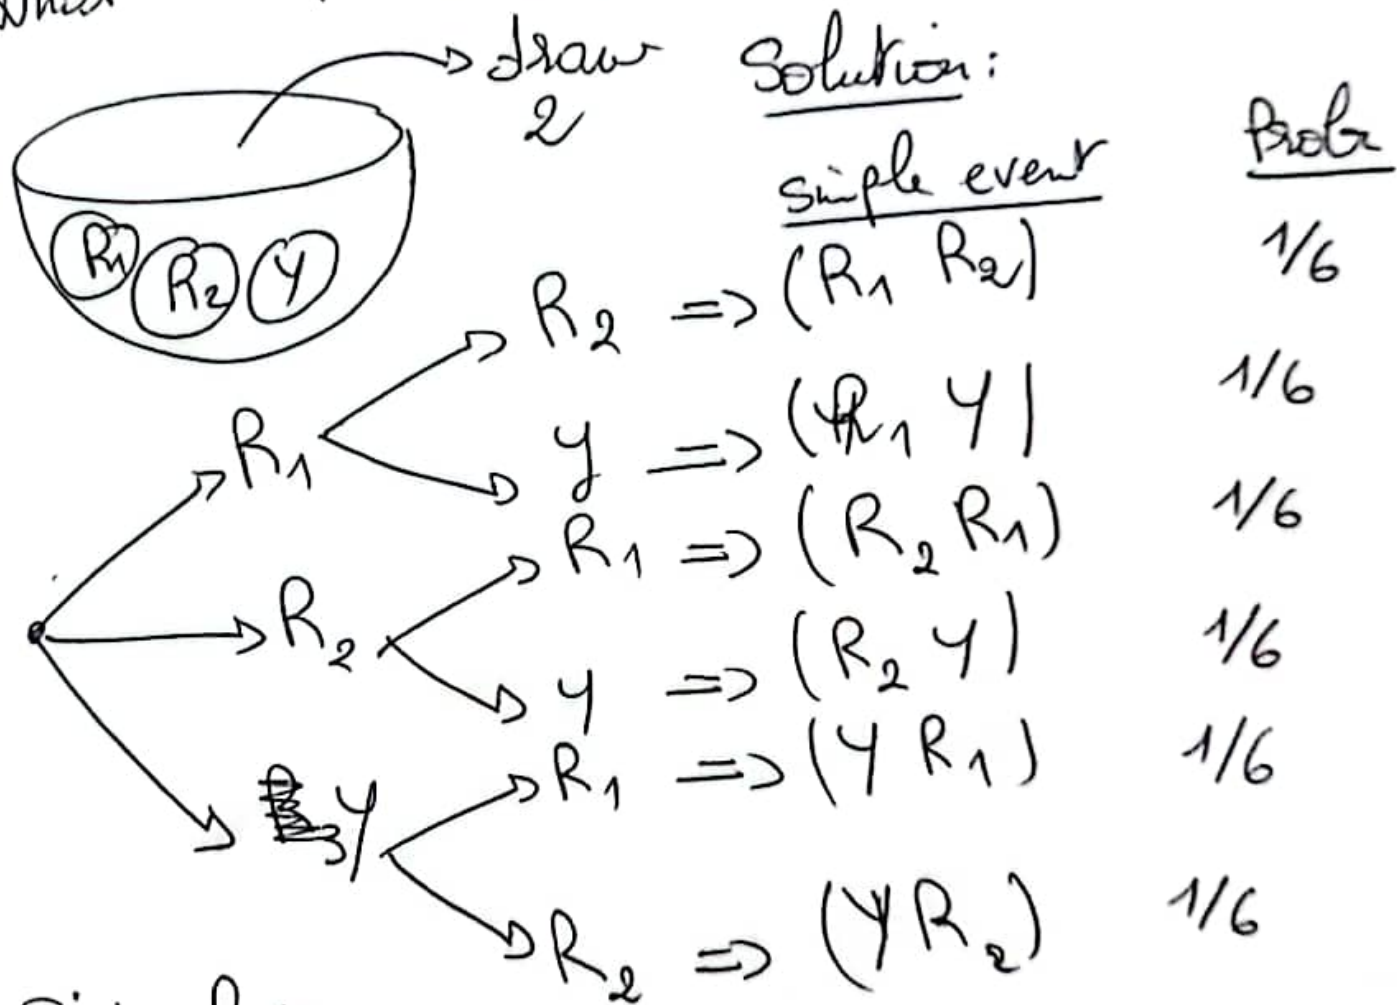 draw
2
Solution:
simple event Proba
R1 R2 Y
R2 => (R1 R2) 1/6
R1
Y => (R1 Y) 1/6
R1 => (R2 R1) 1/6
R2
Y => (R2 Y) 1/6
R1 => (Y R1) 1/6
Y
R2 => (Y R2) 1/6